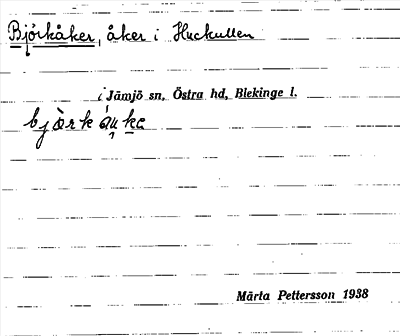 Björkåker, åker i Huckullen
i Jämjö sn, Östra hd, Blekinge l.
Märta Pettersson 1938